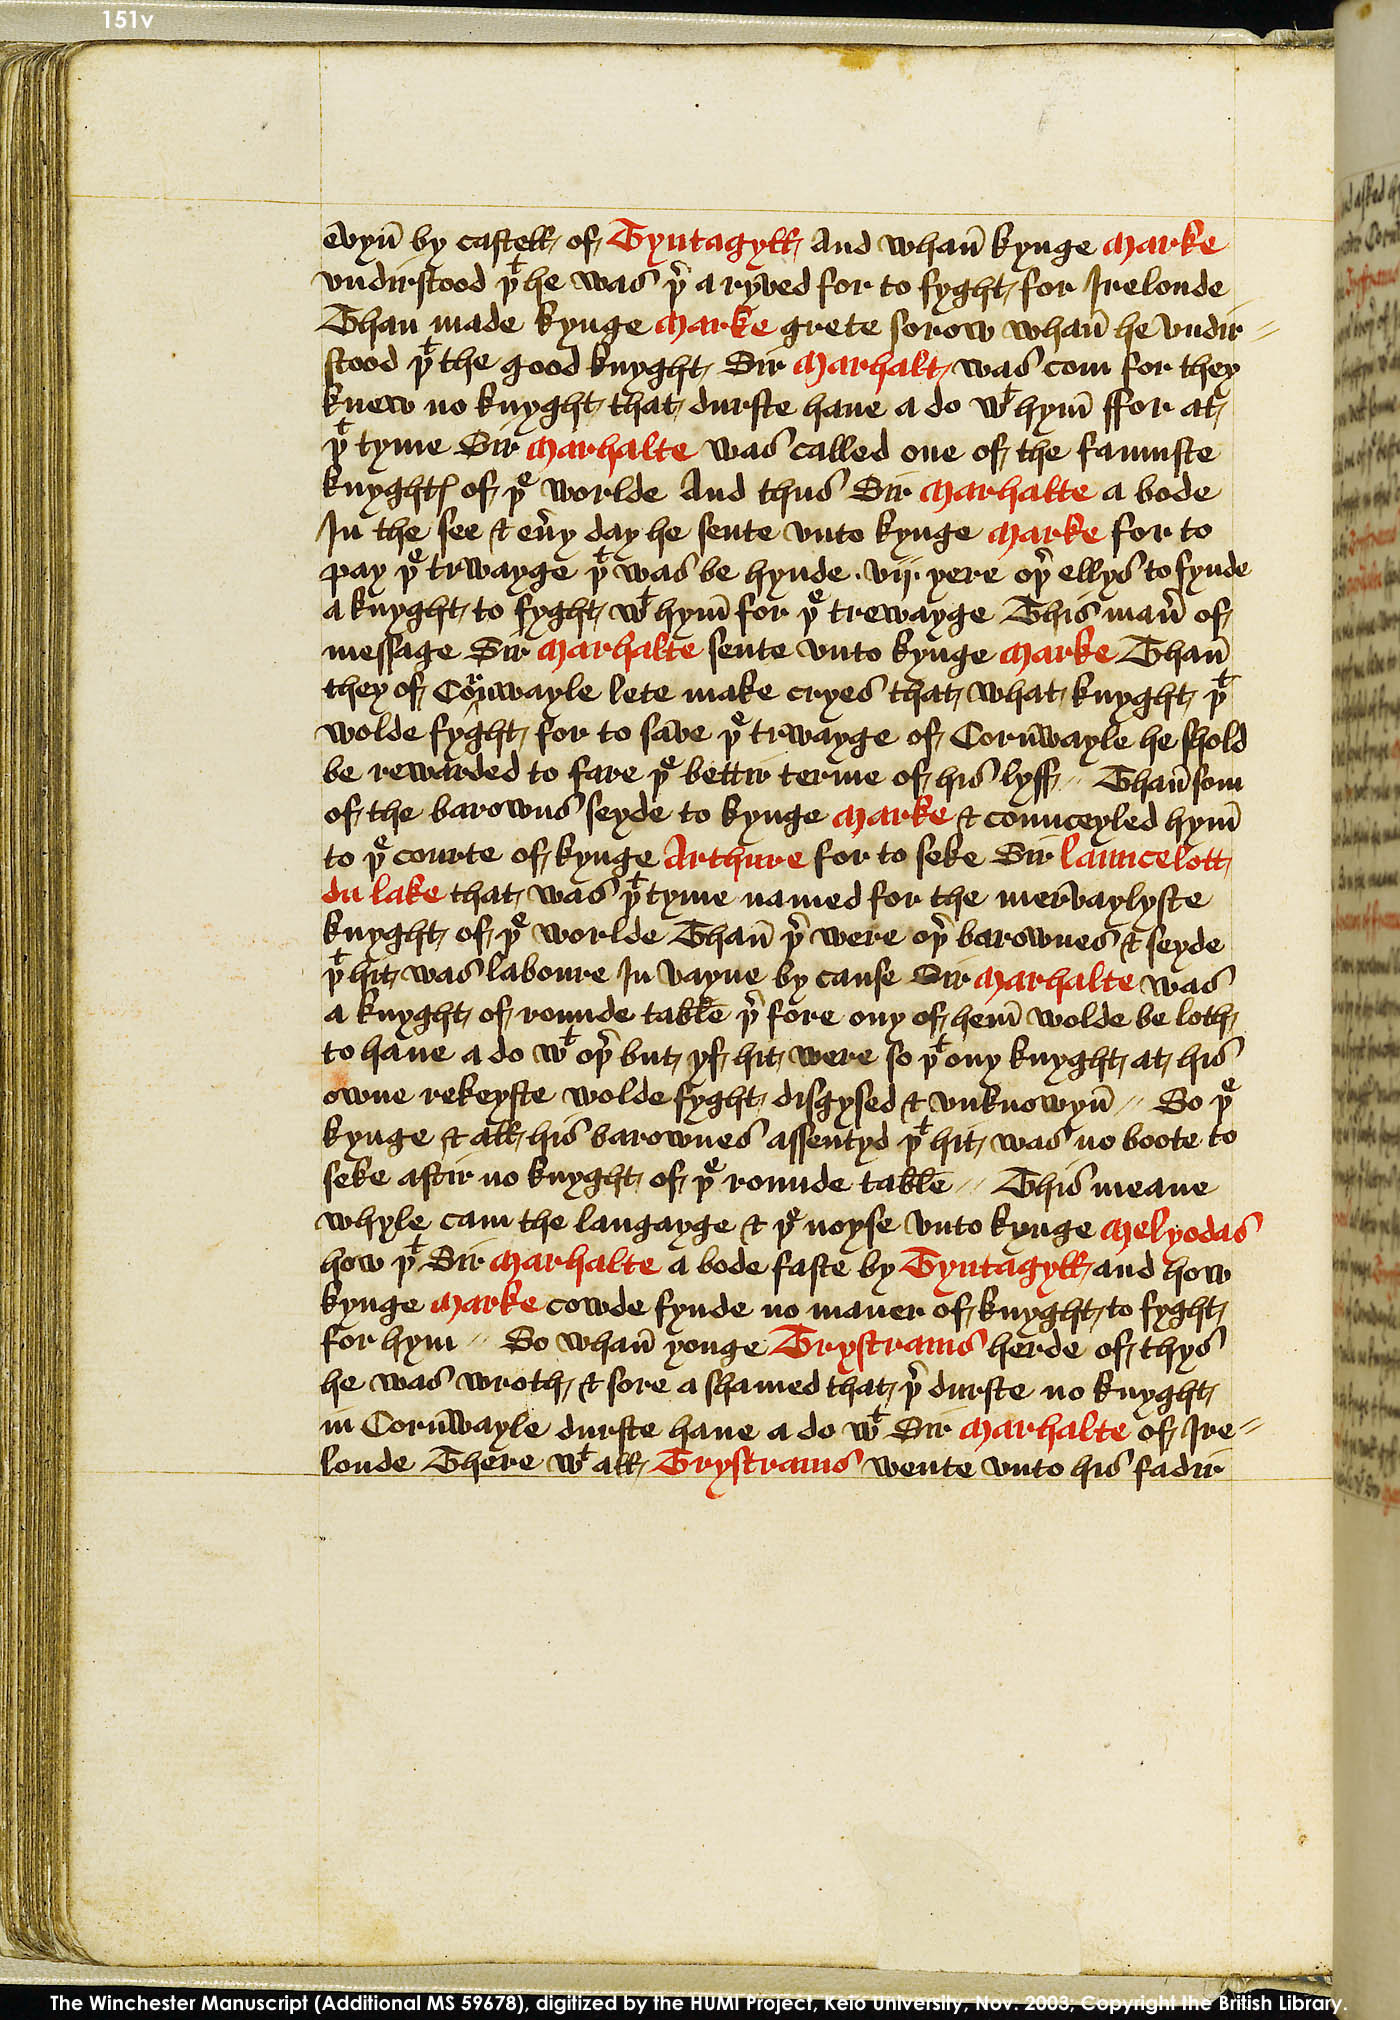 151v
evyn̄ by castell of Tyntagyll And whan̄ kynge Marke
vndirstood þͭ he was þ̉ a ryved for to fyght for Irelonde
Than made kynge Marke grete sorow whan̄ he vndir=
stood þͭ the good knyght Sir Marhalt was com for they
knew no knyght that durste haue a do wͭ hym̄ ffor at
þͭ tyme Sir Marhalte was called one of the famuste
knyghtꝭ of þͤ worlde And thus Sir Marhalte a bode
In the see & eủy day he sente vnto kynge Marke for to
pay þͤ trwayge þͭ was be hynde . vij . yere oþ̉ ellys to fynde
a knyght to fyght wͭ hym̄ for þͤ trewayge This man̉ of
message Sir Marhalte sente vnto kynge Marke Than̄
they of Cornwayle lete make cryes that what knyght þͭ
wolde fyght for to save þͤ trwayge of Corn̄wayle he shold
be rewarded to fare þͤ bettir terme of his lyff // Than̄ som
of the barowns seyde to kynge Marke & counceyled hym̄
to þͤ courte of kynge Arthure for to seke Sir Launcelott
du lake that was þͭ tyme named for the mer̄vaylyste
knyght of þͤ worlde Than̄ þ̉ were oþ̉ barownes & seyde
þͭ hit was laboure In vayne by cause Sir Marhalte was
a knyght of rounde table þ̉ fore ony of hem̄ wolde be loth
to haue a do wͭ oþ̉ but yf hit were so þͭ ony knyght at his
owne rekeyste wolde fyght disgysed & vnknowyn̄ // So þͤ
kynge & all his barownes assentyd þͭ hit was no boote to
seke aftir no knyght of þͤ rounde table // This meane
whyle cam the langayge & þͤ noyse vnto kynge Melyodas
how þͭ Sir Marhalte a bode faste by Tyntagyll and how
kynge Marke cowde fynde no maner of knyght to fyght
for hym // So whan̄ yonge Trystrams herde of thys
he was wroth & sore a shamed that þ̉ durste no knyght
in Corn̄wayle durste haue a do wͭ Sir Marhalte of Ire=
londe There wͭ all Trystrams wente vnto his fadir
The Winchester Manuscript (Additional MS 59678), digitized by the HUMI Project, Keio University, Nov. 2003; Copyright the British Library.